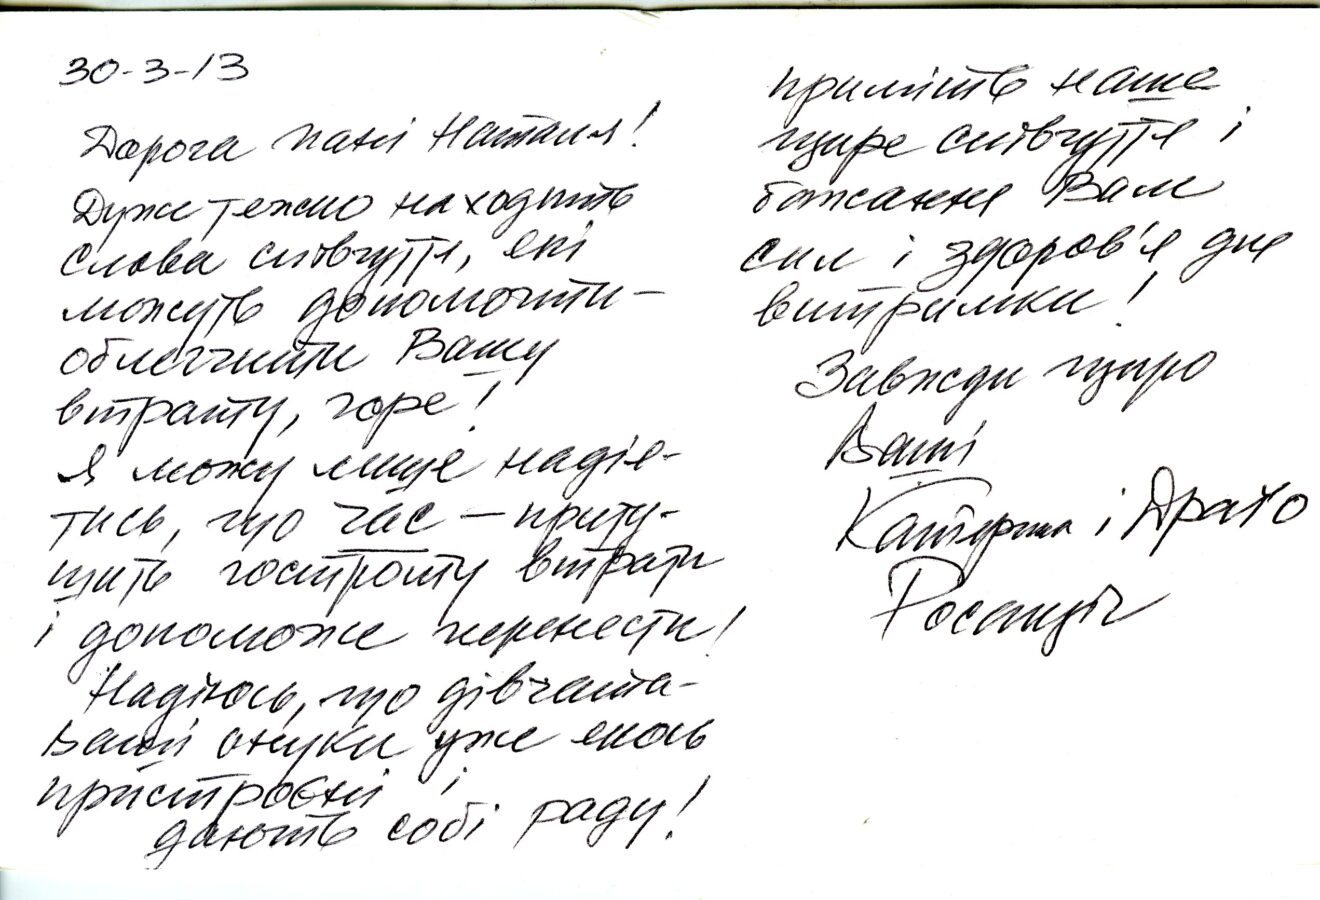 30-3-13
Дорога пані Наталя!
Дуже тежко находить
слова співчуття, які
можуть допомогти –
облегчити Вашу
втрату, горе!
Я можу лише надіє-
тись, що час – приту-
щить гостроту втрати
і допоможе перенести!
Надіюсь, що дівчата –
Ваші онуки уже якось
пристроєні і
дають собі раду!
прийміть наше
щире співчуття і
бажання Вам
сил і здоров'я для
витримки!
Завжди щиро
Ваші
Катерина і Драґо